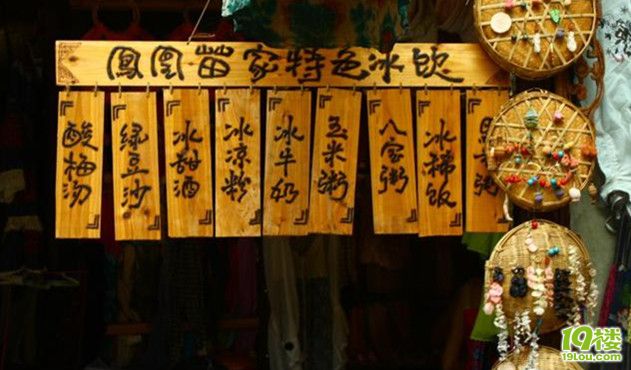 鳳凰苗家特色冰饮
酸梅汤
绿豆沙
冰甜酒
冰凉粉
冰牛奶
玉米粥
八宝粥
冰稀饭
19楼
19lou.com